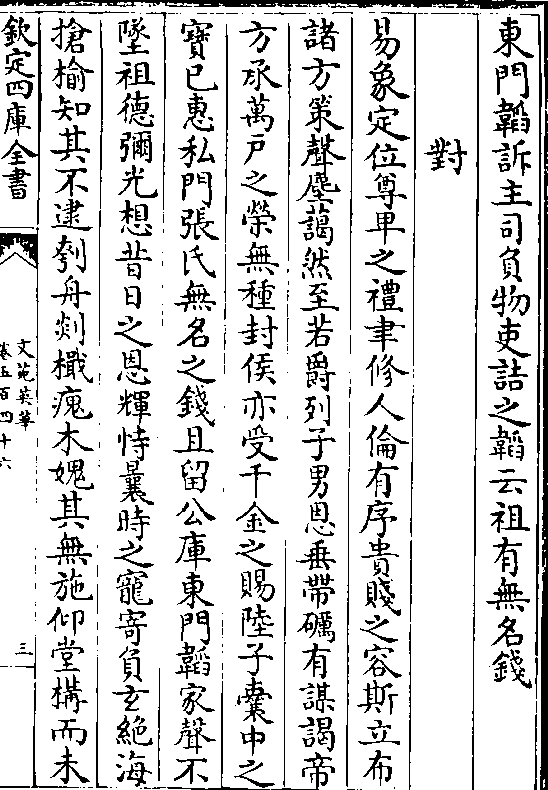 東門韜訴主司負物吏詰之韜云祖有無名錢
對
易象定位尊卑之禮聿修人倫有序貴賤之容斯立布
諸方策聲塵藹然至若爵列子男恩垂帶礪有謀謁帝
方承萬戶之榮無種封侯亦受千金之賜陸子橐中之
寶已惠私門張氏無名之錢且留公庫東門韜家聲不
墜祖德彌光想昔日之恩輝恃曩時之寵寄負玄絶海
搶榆知其不逮刳舟剡檝瘣木媿其無施仰堂構而未
欽定四庫全書
文苑英華
卷五百四十六
三